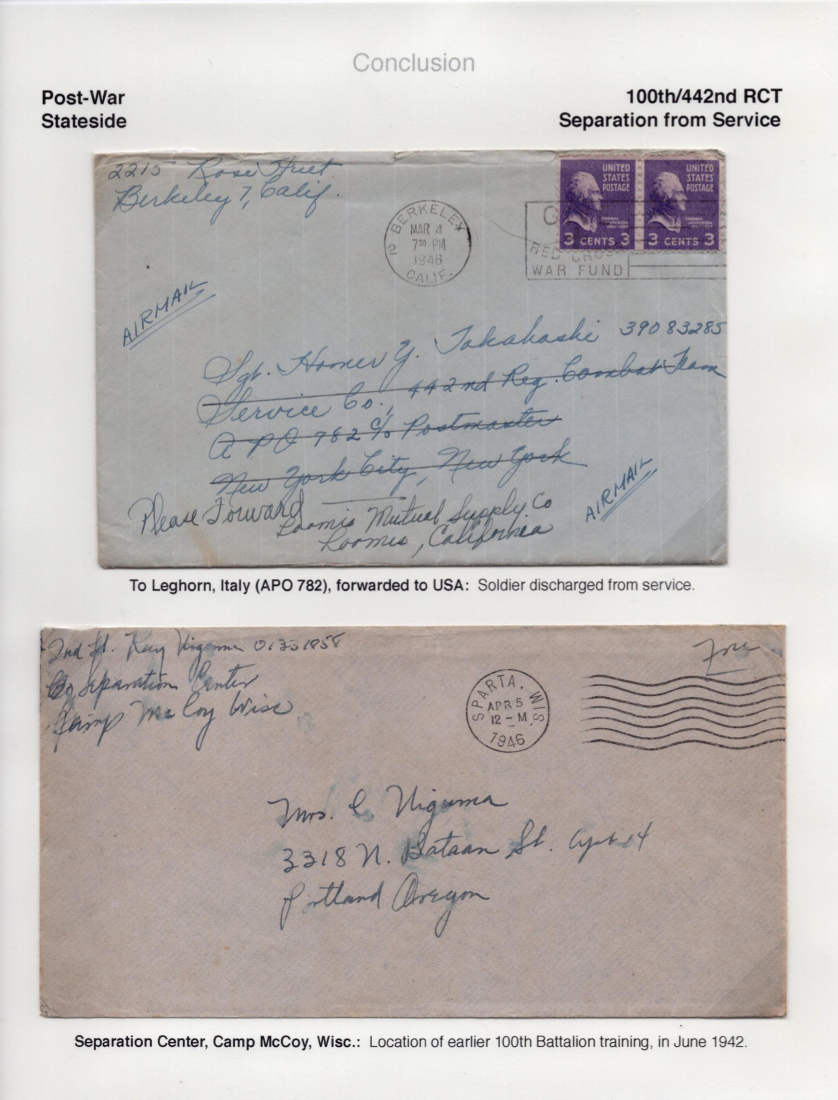 Conclusion
Post-War
Stateside
100th/442nd RCT
Separation from Service
2215 Rose Street
Berkeley 7, Calif.
BERKELEY
2
MAR 4
7 30 PM
1946
CALIF.
RED CROSS
WAR FUND
UNITED
STATES
POSTAGE
3 CENTS 3
UNITED
STATES
POSTAGE
3 CENTS 3
AIRMAIL
Sgt. Homer Y. Takahashi 39083285
Service Co., 442nd Reg. Combat Team
APO 782 c/o Postmaster
New York City, New York
Please Forward
Loomis Mutual Supply Co
Loomis, California
AIRMAIL
To Leghorn, Italy (APO 782), forwarded to USA: Soldier discharged from service.
2nd Lt. Kay
Separation Center
Camp McCoy Wisc
SPARTA, WIS.
APR 5
12 - M
1946
Free
Mrs. C Niguma
3318 N. Bataan St. Apt 14
Portland Oregon
Separation Center, Camp McCoy, Wisc.: Location of earlier 100th Battalion training, in June 1942.